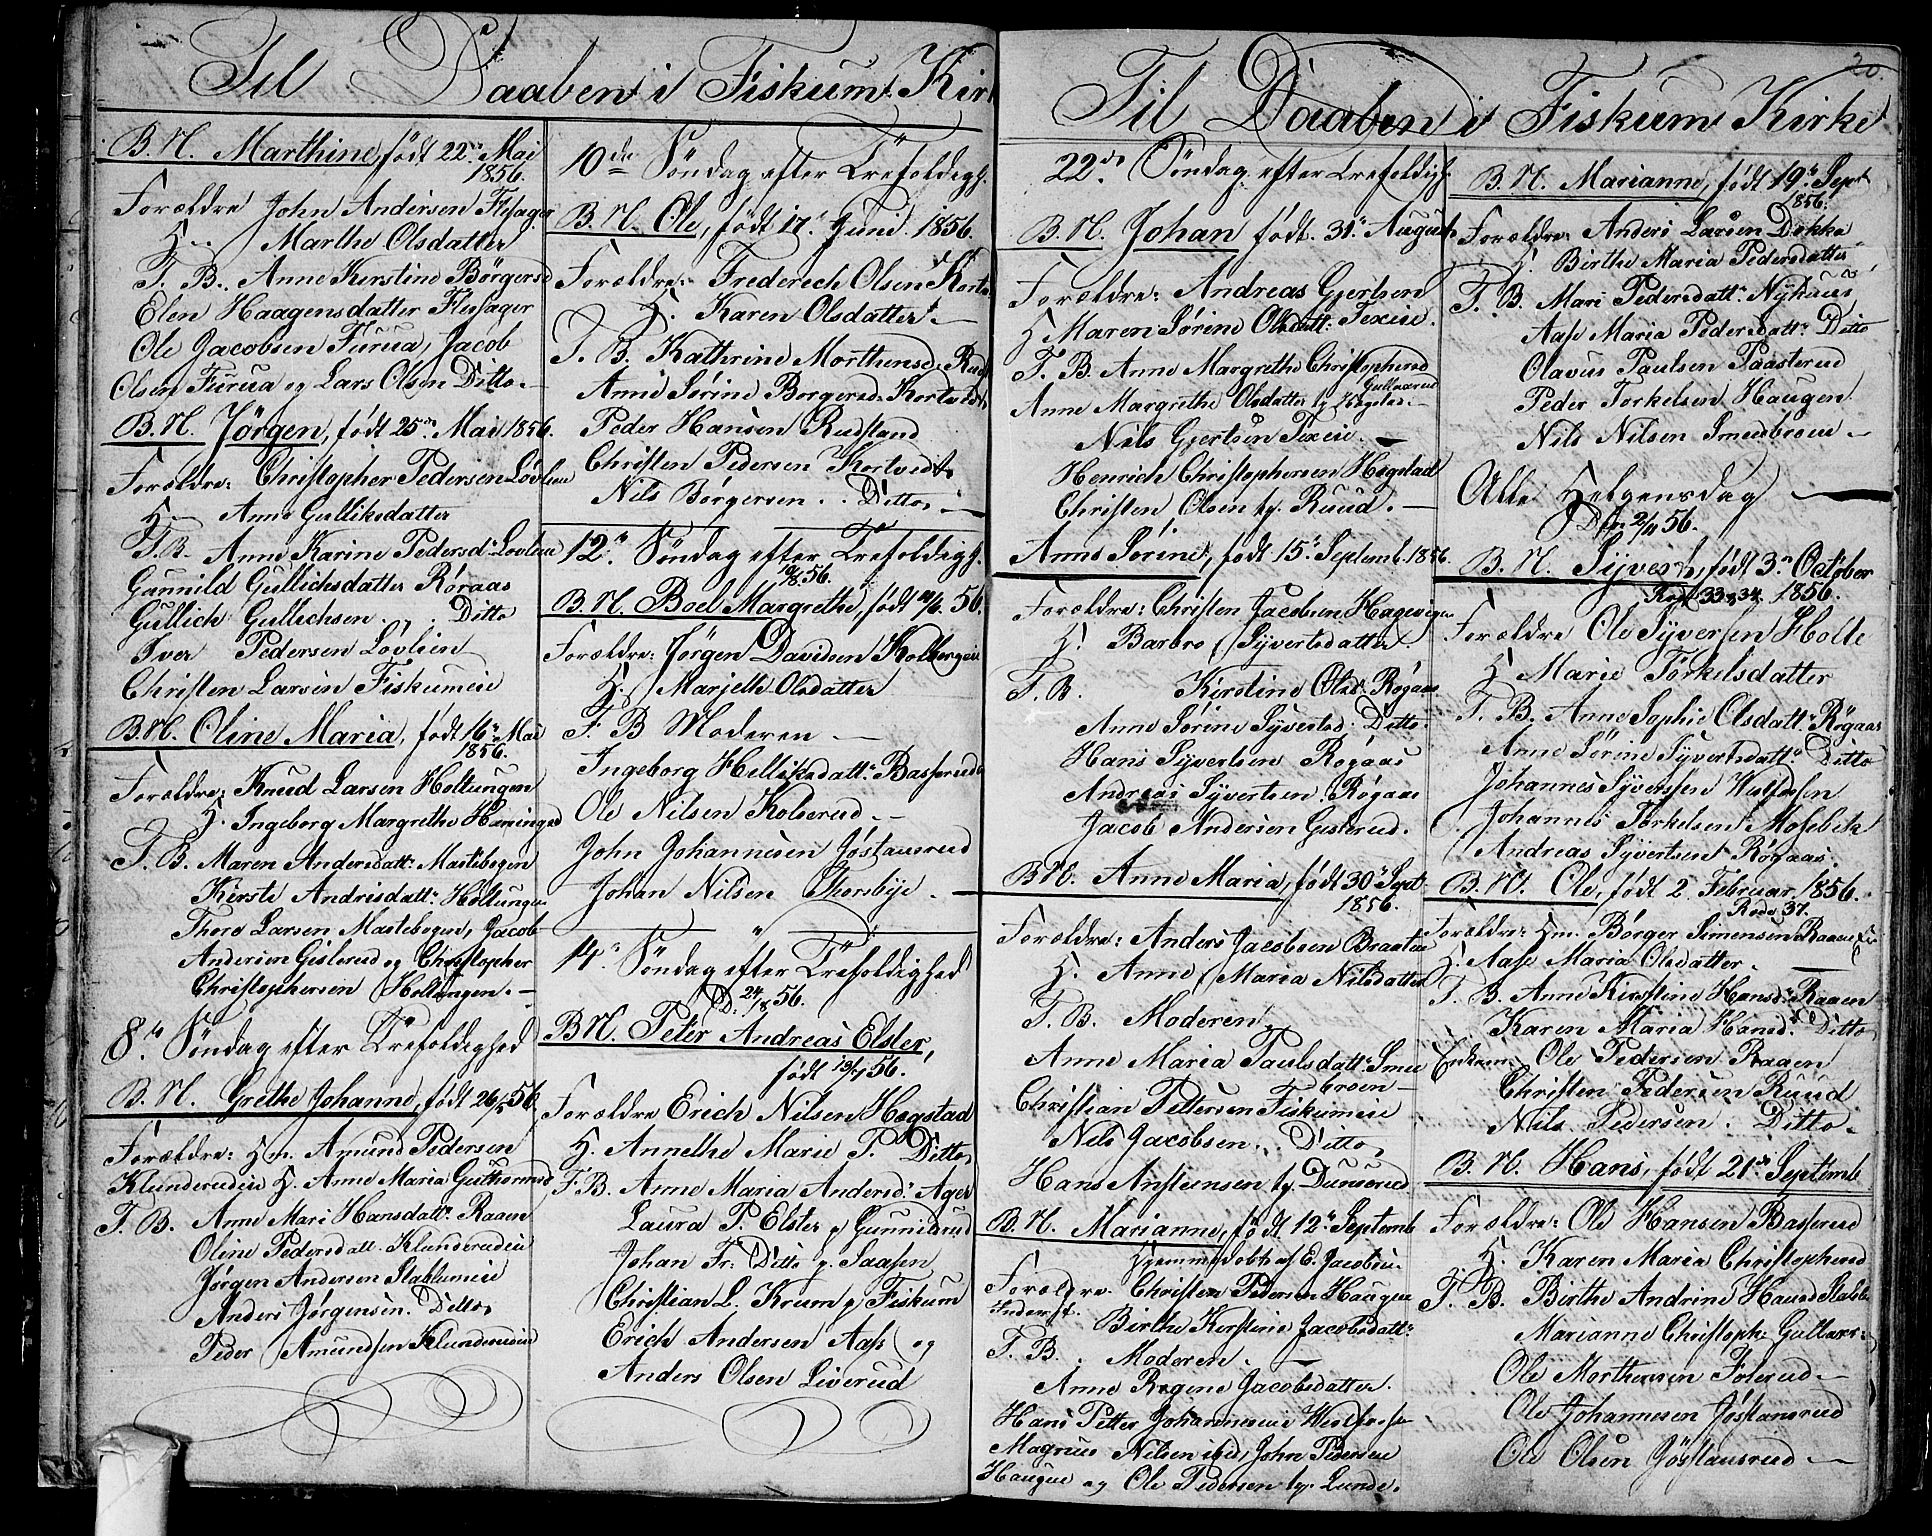 Til Daaben i Fiskum Kirk
B. N. Marthine, født 22de Mai
1856.
Forældre John Andersen Flesager
H. Marthe Olsdatter
F. B. Anne Kirstine Børgersd
Elen Haagensdatter Flesager
Ole Jacobsen Furua, Jacob
Olsen Furua og Lars Olsen Ditto.
B. N. Jørgen, født 25de Mai 1856.
Forældre: Christopher Pedersen Løvlien
H. Anne Gulliksdatter
F. B. Anne Karine Pedersd. Løvlien
Gunnild Gullichsdatter Røraas
Gullich Gullichsen Ditto
Iver Pedersen Løvlien
Christen Larsen Fiskumeie
B. N. Oline Maria, født 16de Mai
1856.
Forældre: Knud Larsen Holtungen
H. Ingeborg Margrethe Hemingsd
F. B. Maren Andersdatt. Mastebogen
Kirste Andrisdatt. Holtungen
Thore Larsen Mastebogen, Jacob
Andersen Gislerud og Christopher
Christophersen Holtungen.
8de Søndag efter Trefoldighed
B. N. Grethe Johanne, født 26/5 56.
Forældre: Hm. Amund Pedersen
Klunderudeie H. Anne Maria Guthormsd
F. B. Anne Mari Hansdatt. Raaen
Oline Pedersdatt. Klunderudeie
Jørgen Andersen Stablumeie
Anders Jørgensen. Ditto,
Peder Amundsen Klunderudeie
10de Søndag efter Trefoldigh.
B. N. Ole, født 17de Juni 1856.
Forældre: Frederech Olsen Kortv
H. Karen Olsdatter.
F. B. Kathrine Morthensd. Rud
Anne Sørine Borgersd. Kortvedt
Peder Hansen Rudstand
Christen Pedersen Kortvedt
Nils Børgersen. Ditto,
12te Søndag efter Trefoldigh.
10/8 56.
B. N. Boel Margrethe, født 56.
Forældre: Jørgen Davidsen Kolbergeie
H. Marjethe Olsdatter
F. B Moderen
Ingeborg Helliksdatt. Basserud
Ole Nilsen Kolserud.
John Johannesen Jøstansrud
Johan Nilsen Thorsbye.
14de Søndag efter Trefoldighed
D. 24/8 56.
B. N. Peter Andreas Elster,
født 19/7 56.
Forældre Erich Nilsen Hegstad
H. Annethe Marie P. Ditto,
F. B. Anne Maria Andersd. Ager
Laura P. Elster p Gunnildrud
Johan Fr. Ditto p. Saasen
Christian L. Krum p Fiskum
Erich Andersen Aass og
Anders Olsen Liverud
20.
Til Daaben i Fiskum Kirke
22de Søndag efter Trefoldigh.
B. N. Johan født. 31te August
Forældre: Andreas Gjertsen
H Maren Sørine Olsdatt. Texeie.
F. B. Anne Margrethe Christophersd
Gullaarud
Anne Margrethe Olsdatter
Nils Gjertsen Texeie.
Henrich Christophersen Hegstad
Christen Olsen tj. Ruud.
Anne Sørine, født 15de Septemb. 1856
Forældre: Christen Jacobsen Hageeigen
H. Barbro Syvertsdatter.
F. B. Kirstine Olsd. Røgaas
Anne Sørine Syvertsd. Ditto
Hans Syvertsen Røgaas
Andreas Syvertsen Røgaas
Jacob Andersen Gislerud.
B. N. Anne Maria, født 30te Sept
1856.
Forældre: Anders Jacobsen Braaten
H. Anne Maria Nilsdatter
F. B. Moderen,
Anne Maria Paulsdatt. Sme
broen
Christian Pettersen Fiskumeie
Nils Jacobsen. Ditto,
Hans Anstensen tj. Dunserud
B. N. Marianne, født 12te Septemb
Hjemmedøbt af E. Jacobsen.
Forældre. Christen Pedersen Haugen
Inderst.
Birthe Kirstine Jacobsdatt.
F. B. Moderen.
Anne Regine Jacobsdatter.
Hans Petter Johannesen Westfossen
Magnus Nilsen ibid, John Pedersen
Haugen og Ole Pedersen tj. Lunde.
B. N. Marianne, født 19de Sept
1856.
Forældre Anders Larsen Dokka
H. Birthe Maria Pedersdatter
F. B. Mari Pedersdatt. Nyhuus
Aase Maria Pedersdatt. Ditto
Olavus Paulsen Paasterud
Peder Torkelsen Haugen
Nils Nilsen Smedbroen
Alle Helgensdag
D. 2/11 56.
B. N. Syvert, født 3de October
Rode 33 & 34. 1856.
Forældre Ole Syversen Holte
H Marie Torkelsdatter
F. B. Anne Sophie Olsdatt. Røgaas
Anne Sørine Syvertsdatt. Ditto
Johannes Syverssen Westfossen
Johannes Torkelsen Mosebek
Andreas Syvertsen Røgaas.
B. N. Ole, født 2. Februar 1856.
Rode 37.
Forældre: Hm. Børger Simensen Raaen
H. Aase Maria Olsdatter.
F. B. Anne Kirstine Hansd. Raaen
Karen Maria Hansd. Ditto
Enkem. Ole Pedersen Raaen
Christen Pedersen Ruud
Nils Pedersen. Ditto.
B. N. Hans, født 21de Septemb
Forældre: Ole Hansen Basserud
H. Karen Maria Christophersd
F. B. Birthe Andrine Hansd
Marianne Christoph.
Ole Morthensen Foserud
Ole Johannesen Jøstansrud
Ole Olsen Jøstansrud